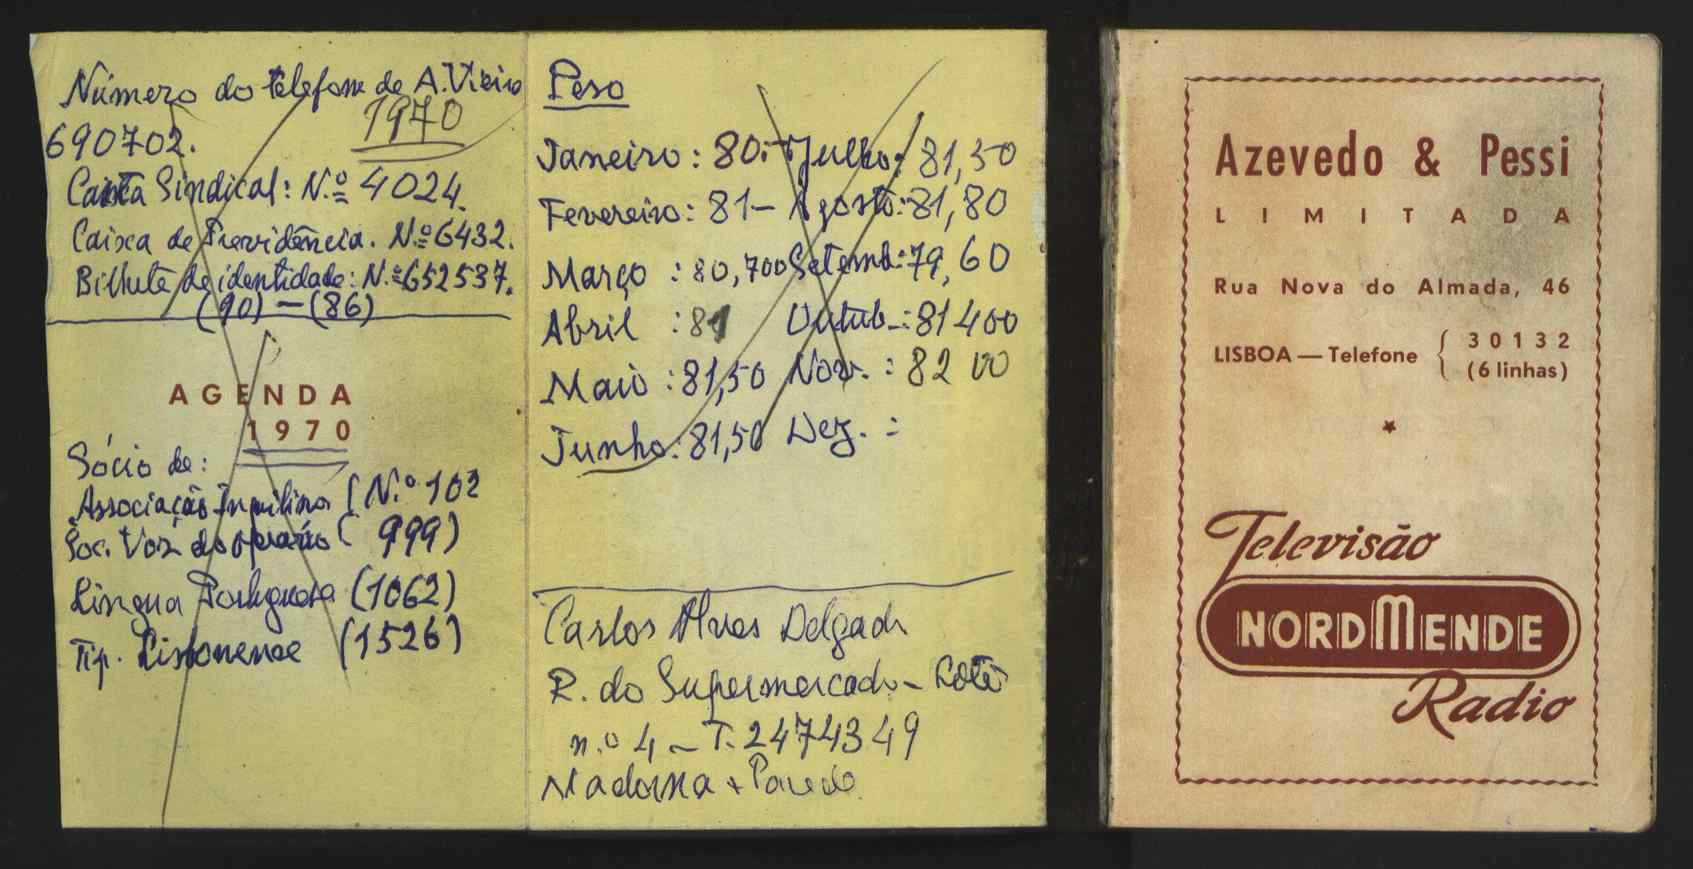 Número do telefone de A. Vieira
1970
690702.
Carta Sindical: N.º 4024.
Caixa de Previdência. N.º 6432.
Bilhete de identidade: N.º 652537.
(90) — (86)
AGENDA
1970
Sócio de:
Associação Inquilinos (N.º 102
Soc. Voz do operário ( 999)
Lingua Portuguesa (1062)
Tip. Lisbonense (1526)
Peso
Janeiro: 80.- Julho: 81,50
Fevereiro: 81- Agosto: 81,80
Março : 80,700 Setemb: 79,60
Abril : 81 Outub-: 81400
Maio : 81,50 Nov. : 82 00
Junho: 81,50 Dez. :
Carlos Alves Delgado
R. do Supermercado - Lote
n.º 4 - T. 2474349
Madorna - Parede
Azevedo & Pessi
LIMITADA
Rua Nova do Almada, 46
LISBOA — Telefone { 30132
(6 linhas)
Televisão
NORDMENDE
Radio